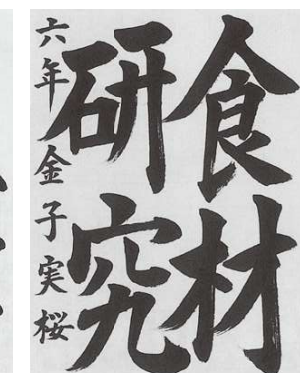 食材
研究
六年金子実桜